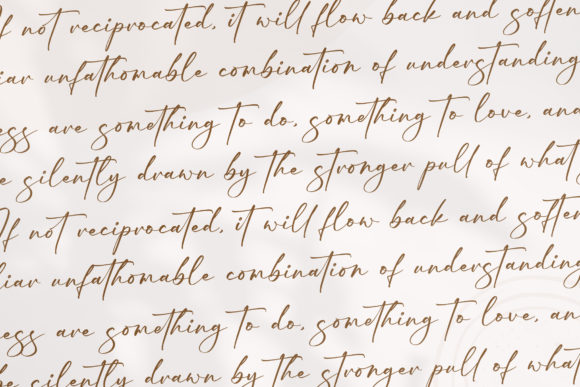 If not reciprocated, it will flow back and soften
liar unfathomable combination of understanding
ess are something to do, something to love, and
be silently drawn by the stronger pull of what
If not reciprocated, it will flow back and soften
liar unfathomable combination of understanding
ess are something to do, something to love, an
be silently drawn by the stronger pull of what